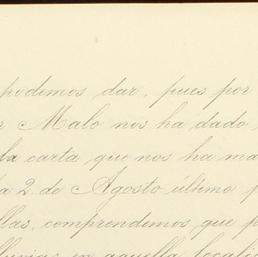 podemos dar, pues por
Malo nos ha dado
la carta que nos ha ma
2 de Agosto último p
llas, comprendemos que p
lluvias en aquella locali